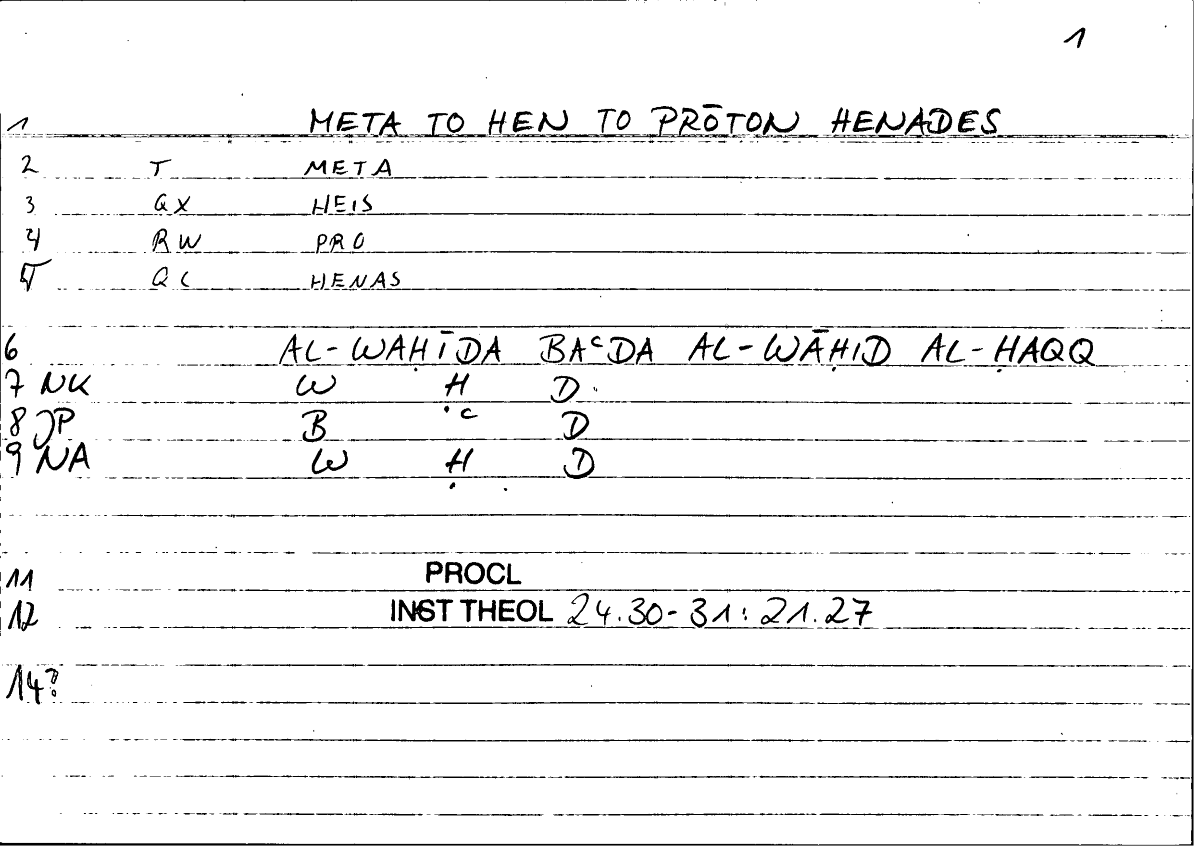 1
1 META TO HEN TO PRŌTON HENADES
2 T META
3 QX HEIS
4 RW PRO
5 QC HENAS
6 AL-WAḤĪDA BAᶜDA AL-WĀḤID AL-ḤAQQ
7 NK W Ḥ D
8 JP B ᶜ D
9 NA W Ḥ D
11 PROCL
12 INST THEOL 24.30-31: 21.27
14?